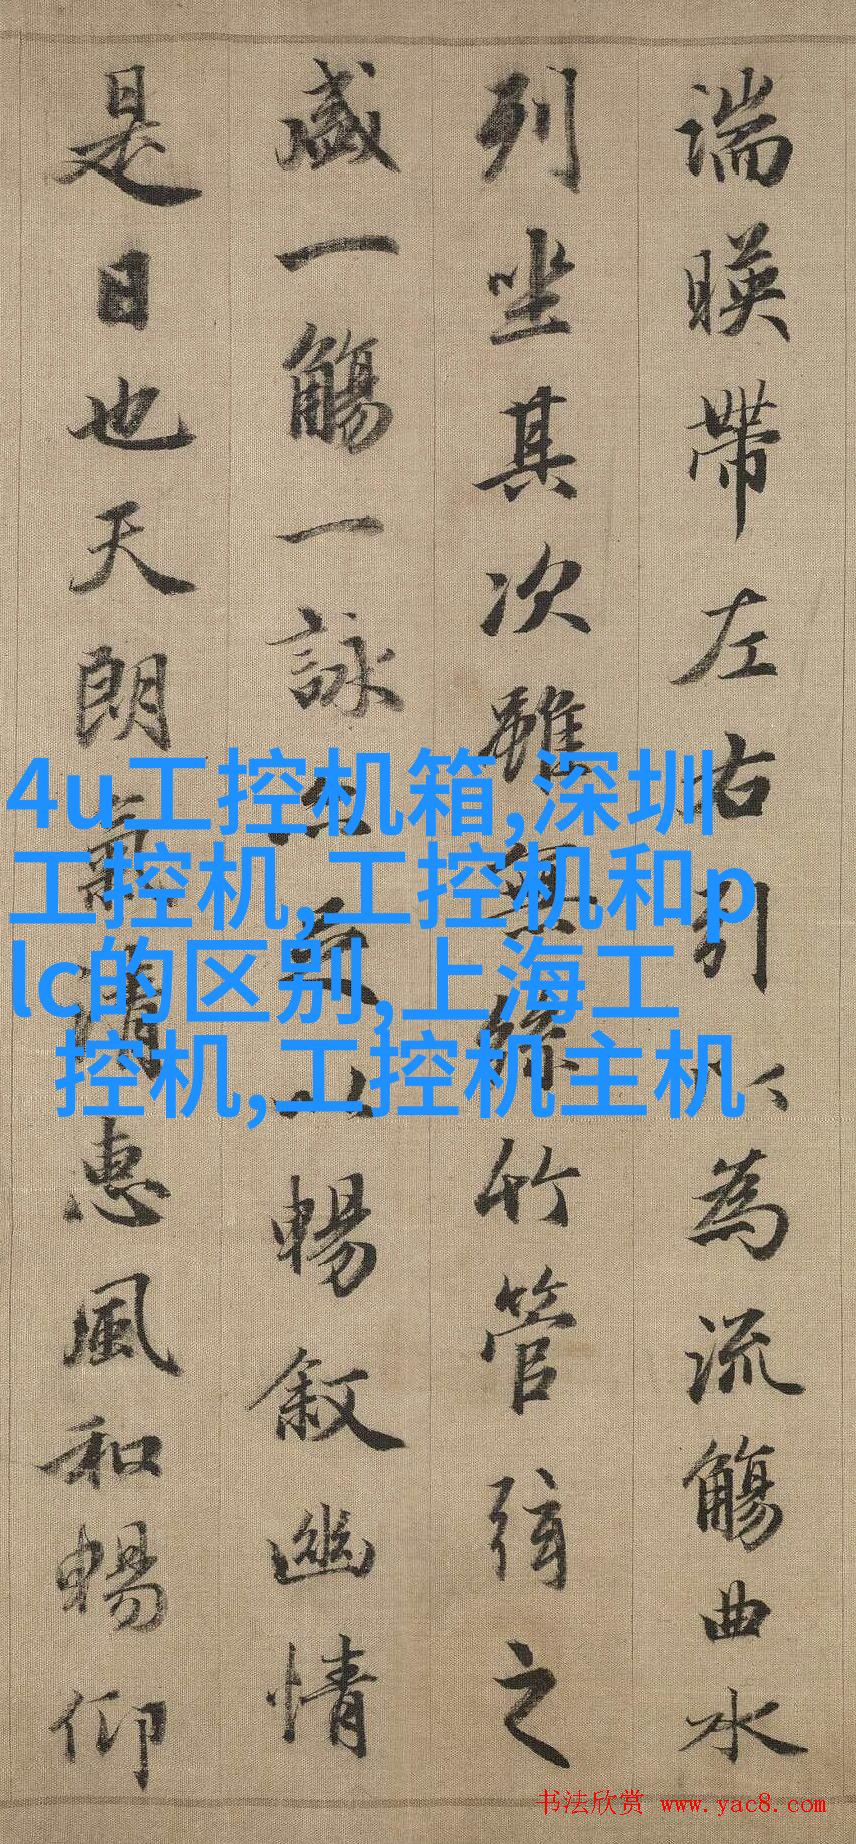 湍暎帶左右引以為流觴曲水
列坐其次雖無絲竹管弦之
盛一觴一詠亦足以暢叙幽情
是日也天朗氣清惠風和暢仰
4u工控机箱,深圳
工控机,工控机和p
lc的区别,上海工
控机,工控机主机
书法欣赏 www.yac8.com